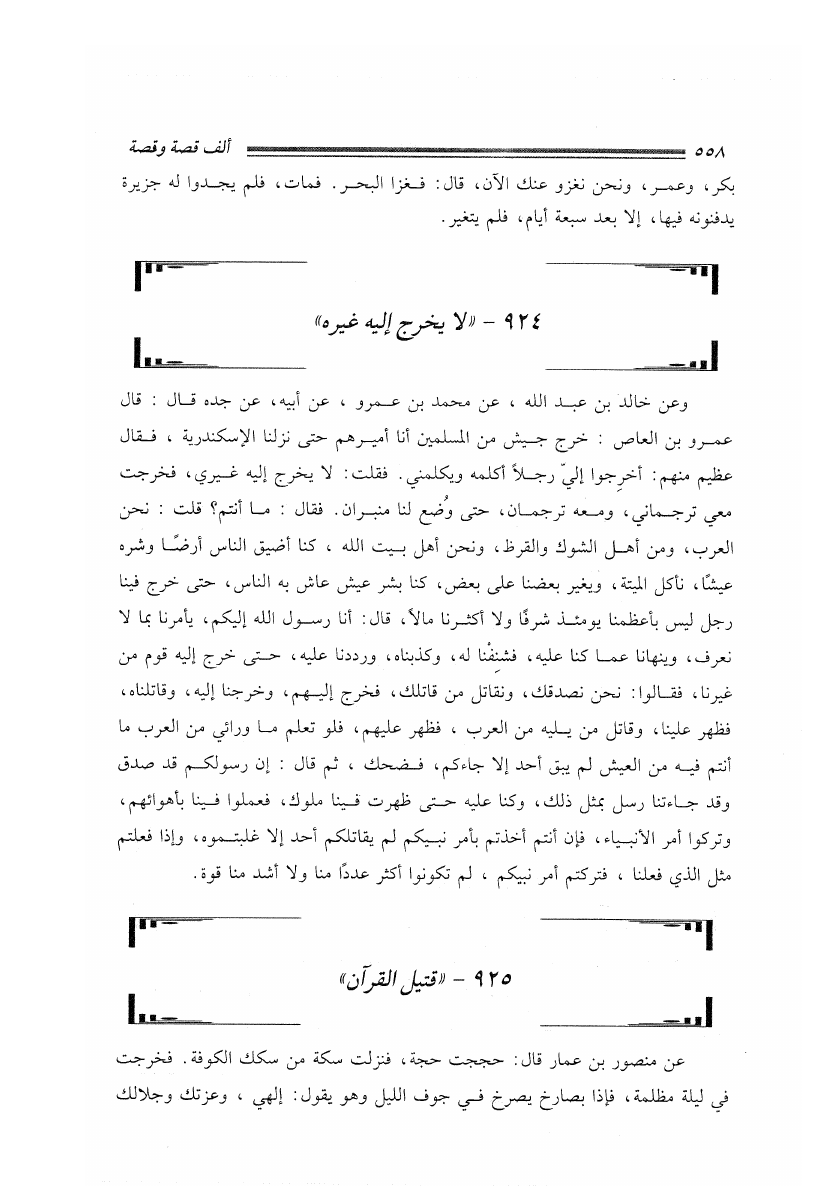 ٥٥٨ ألف قصة وقصة
بكر، وعمر، ونحن نغزو عنك الآن، قال: فغزا البحر. فمات، فلم يجدوا له جزيرة
يدفنونه فيها، إلا بعد سبعة أيام، فلم يتغير.
٩٢٤ – «لا يخرج إليه غيره»
وعن خالد بن عبد الله ، عن محمد بن عمرو ، عن أبيه، عن جده قال : قال
عمرو بن العاص : خرج جيش من المسلمين أنا أميرهم حتى نزلنا الإسكندرية ، فقال
عظيم منهم: أخرِجوا إليّ رجلاً أكلمه ويكلمني. فقلت: لا يخرج إليه غيري، فخرجت
معي ترجماني، ومعه ترجمان، حتى وُضع لنا منبران. فقال : ما أنتم؟ قلت : نحن
العرب، ومن أهل الشوك والقرظ، ونحن أهل بيت الله ، كنا أضيق الناس أرضًا وشره
عيشًا، نأكل الميتة، ويغير بعضنا على بعض، كنا بشر عيش عاش به الناس، حتى خرج فينا
رجل ليس بأعظمنا يومئذ شرفًا ولا أكثرنا مالاً، قال: أنا رسول الله إليكم، يأمرنا بما لا
نعرف، وينهانا عما كنا عليه، فشنِفْنا له، وكذبناه، ورددنا عليه، حتى خرج إليه قوم من
غيرنا، فقالوا: نحن نصدقك، ونقاتل من قاتلك، فخرج إليهم، وخرجنا إليه، وقاتلناه،
فظهر علينا، وقاتل من يليه من العرب ، فظهر عليهم، فلو تعلم ما ورائي من العرب ما
أنتم فيه من العيش لم يبق أحد إلا جاءكم، فضحك ، ثم قال : إن رسولكم قد صدق
وقد جاءتنا رسل بمثل ذلك، وكنا عليه حتى ظهرت فينا ملوك، فعملوا فينا بأهوائهم،
وتركوا أمر الأنبياء، فإن أنتم أخذتم بأمر نبيكم لم يقاتلكم أحد إلا غلبتموه، وإذا فعلتم
مثل الذي فعلنا ، فتركتم أمر نبيكم ، لم تكونوا أكثر عددًا منا ولا أشد منا قوة.
٩٢٥ – «قتيل القرآن»
عن منصور بن عمار قال: حججت حجة، فنزلت سكة من سكك الكوفة. فخرجت
في ليلة مظلمة، فإذا بصارخ يصرخ في جوف الليل وهو يقول: إلهي ، وعزتك وجلالك